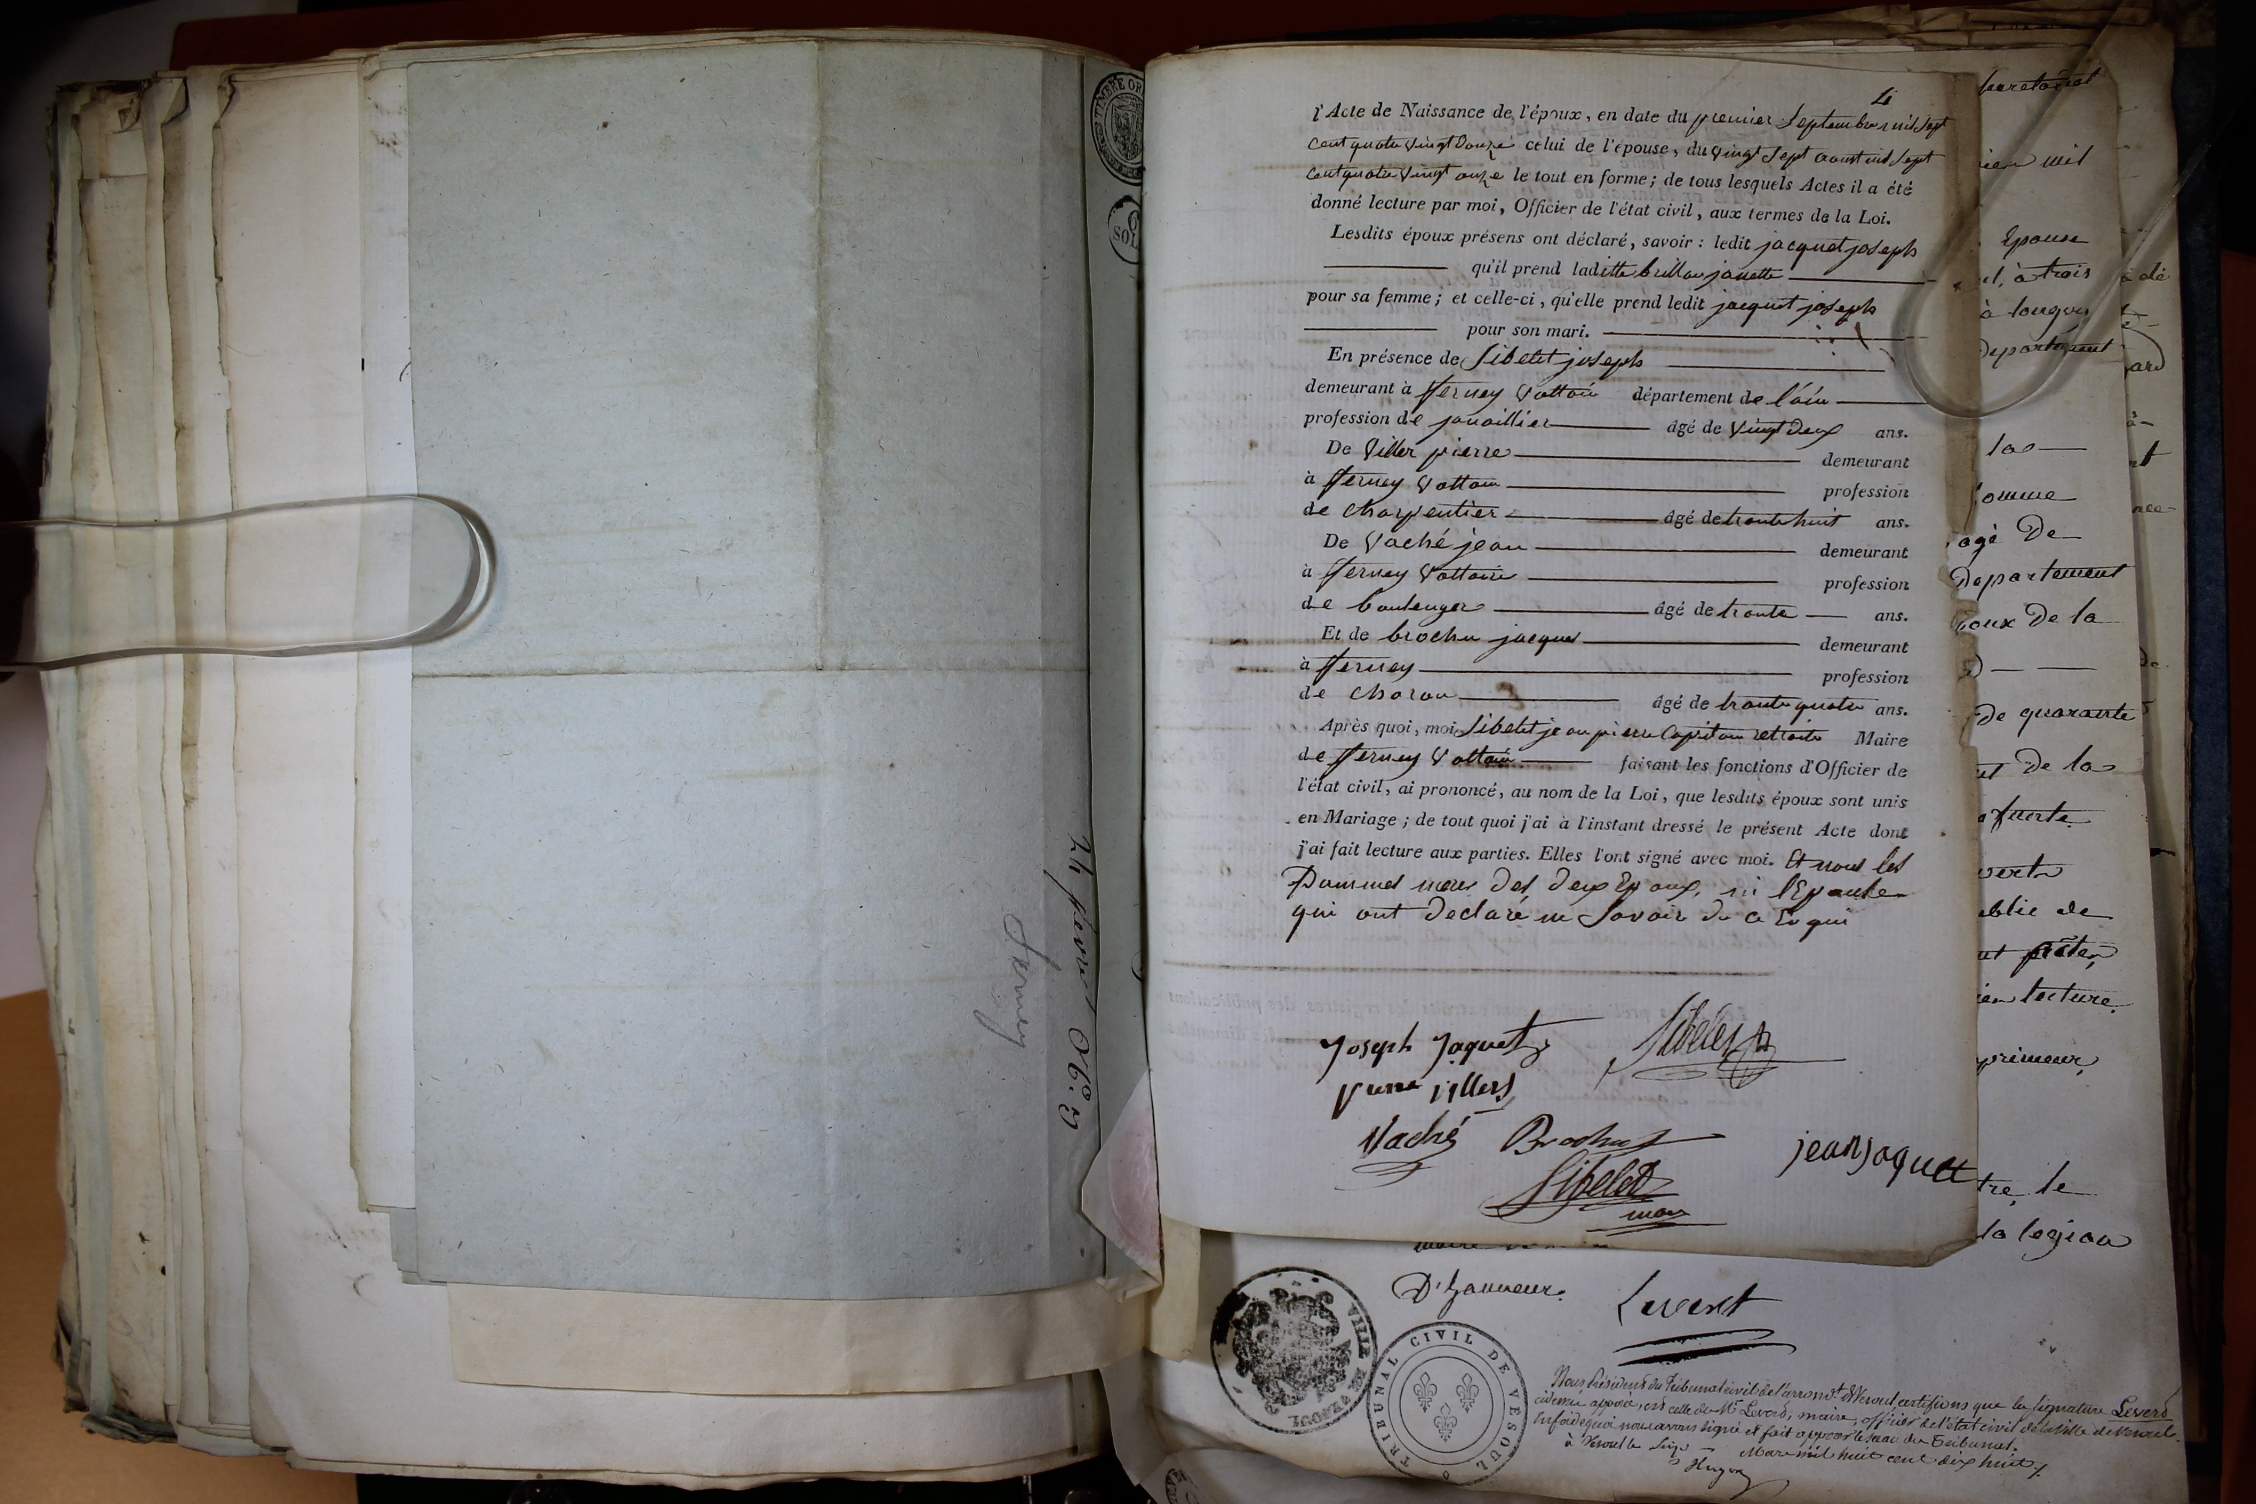 TIMBRE OR
SOL
24 fevrier No. 5
Fernex
4
l'Acte de Naissance de l'époux, en date du premier Septembre mil Sept
cent quatre vingt douze celui de l'épouse, du vingt Sept aoust mil Sept
cent quatre vingt onze le tout en forme; de tous lesquels Actes il a été
donné lecture par moi, Officier de l'état civil, aux termes de la Loi.
Lesdits époux présens ont déclaré, savoir : ledit jacquet joseph
qu'il prend laditte brillon janette
pour sa femme; et celle-ci, qu'elle prend ledit jacquet joseph
pour son mari.
En présence de Sibelet joseph
demeurant à ferney Voltaire département de l'ain
profession de jouaillier âgé de vingt deux ans.
De Viller pierre demeurant
à ferney Voltaire profession
de charpentier âgé de trente huit ans.
De Vaché jean demeurant
à ferney Voltaire profession
de boulenger âgé de trente ans.
Et de brochu jacques demeurant
à ferney profession
de charon âgé de trente quatre ans.
Après quoi, moi, Sibelet jean pierre Capitain retraite Maire
de ferney Voltaire faisant les fonctions d'Officier de
l'état civil, ai prononcé, au nom de la Loi, que lesdits époux sont unis
en Mariage; de tout quoi j'ai à l'instant dressé le présent Acte dont
j'ai fait lecture aux parties. Elles l'ont signé avec moi. Et nous les
deux Epoux, ni l'Epouse
qui ont declaré ne Savoir de ce En qui
Joseph Jaquet Sibelet
pierre villers
Vaché Brochut
jean jaquet
Sibelet
maire
Epouse
à trois
à longvy
Departement
la
omme
agé De
Departement
poux de la
de quarante
De la
verte
ublie de
lecture
primeur,
tre, le
la legion
D'honneur.
Levert
VILLE DE VESOUL
TRIBUNAL CIVIL DE VESOUL
Nous Président du Tribunal civil de l'arrondt. de Vesoul certifions que la signature Leverd
cidessus apposée, est celle de Mr Leverd, maire, officier de l'état civil de la ville de Vesoul.
En foi de quoi nous avons signé et fait apposer le sceau du Tribunal.
à Vesoul le Seize Mars mil huit cent dix huit
Hugon